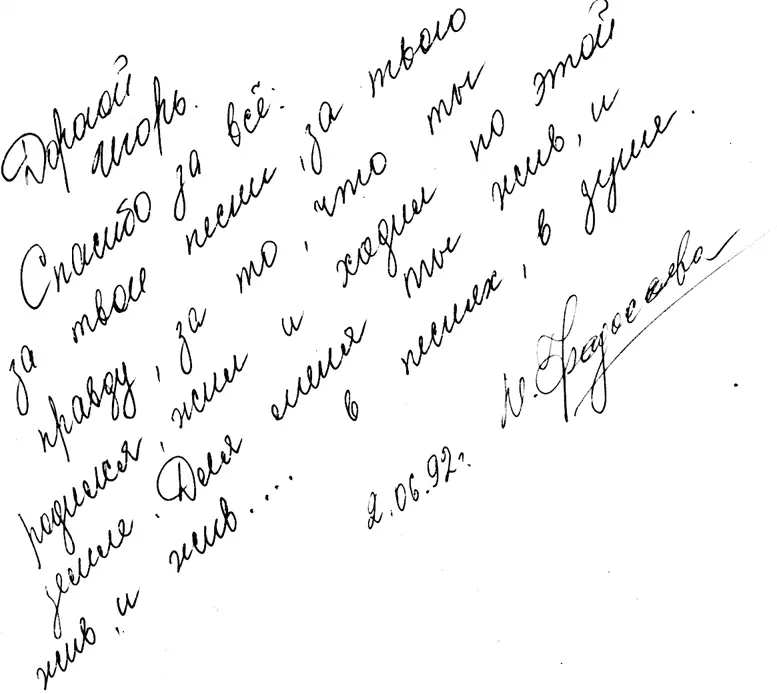 Дорогой
Игорь.
Спасибо за всё:
за твои песни, за твою
правду, за то, что ты
родился, жил и ходил по этой
земле. Для меня ты жив, и
жив, и жив.... в песнях, в душе.
2.06.92г.